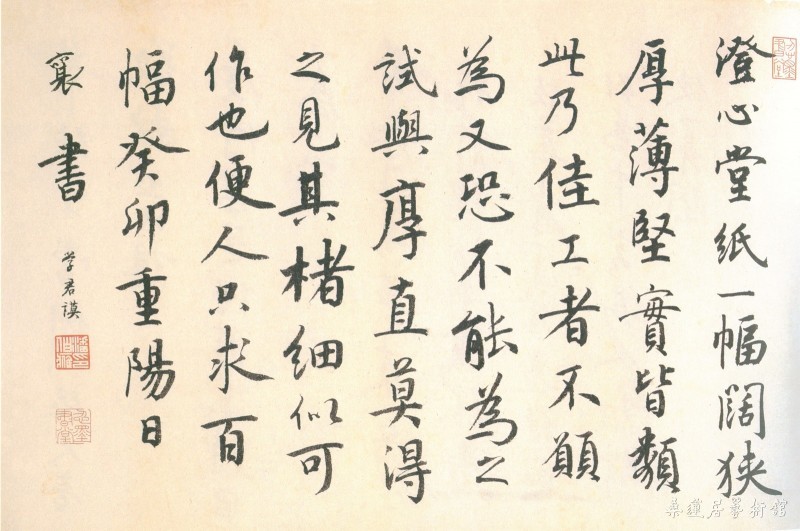 澄心堂紙一幅闊狹
厚薄堅實皆類
此乃佳工者不願
為又恐不能為之
試與厚直莫得
之見其楮細似可
作也便人只求百
幅癸卯重陽日
襄書
学君謨
桑蓮居藝術館